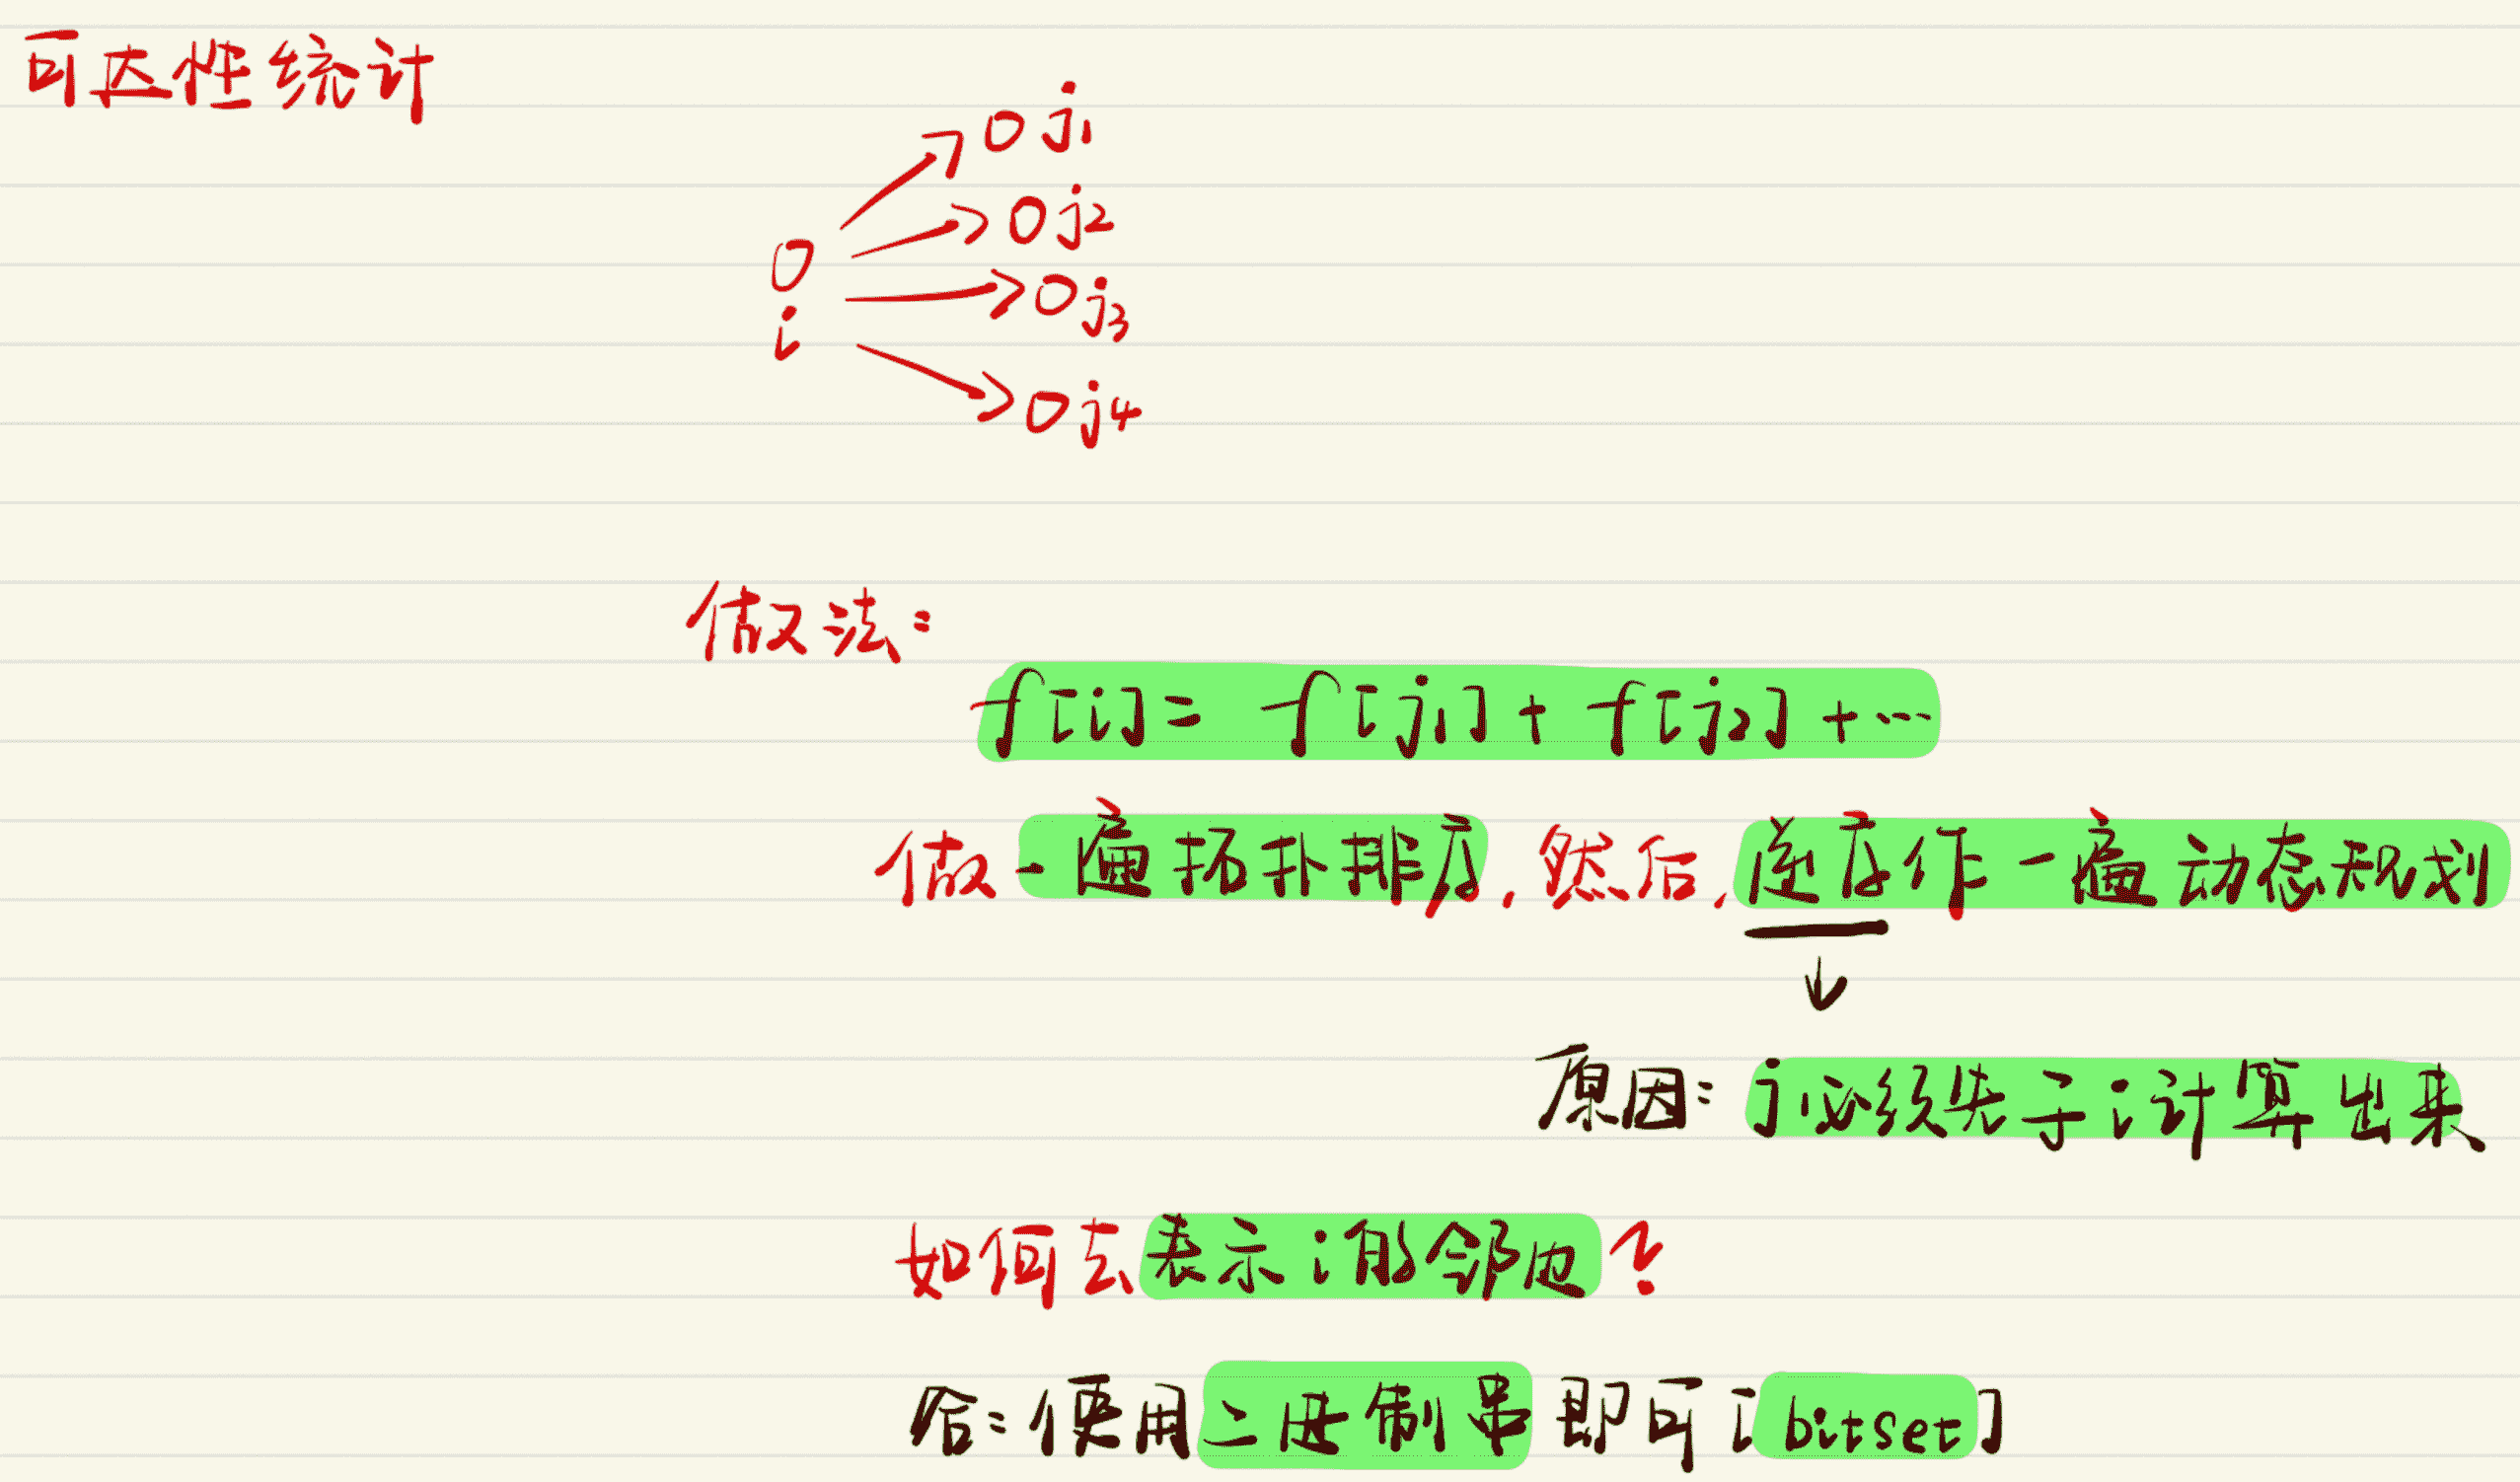 可达性统计
j1
j2
i
j3
j4
做法:
f[i] = f[j1] + f[j2] + ...
做一遍拓扑排序,然后,逆序作一遍动态规划
原因: j必须先于i计算出来
如何去表示i的邻边?
答:使用二进制串即可[bitset]